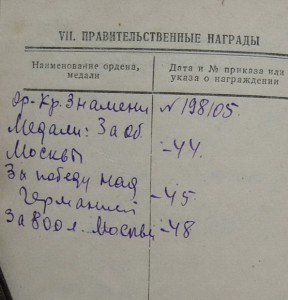 VII. ПРАВИТЕЛЬСТВЕННЫЕ НАГРАДЫ
Наименование ордена, медали
Дата и № приказа или указа о награждении
Ор. Кр. Знамени N 198105.
Медали: За об.
Москвы -44.
За победу над
Германией -45
За 800 л. Москвы -48